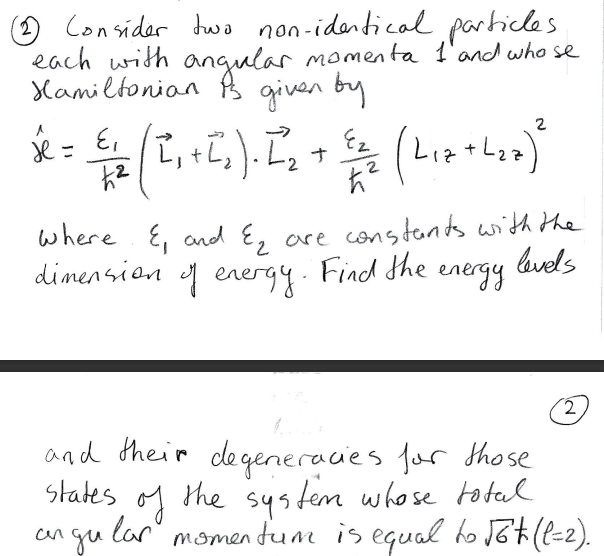 ② Consider two non-identical particles
each with angular momenta 1 and whose
Hamiltonian is given by
Ĥ = ε₁/ħ² (L⃗₁ + L⃗₂) · L⃗₂ + ε₂/ħ² (L₁z + L₂z)²
where ε₁ and ε₂ are constants with the
dimension of energy. Find the energy levels
②
and their degeneracies for those
states of the system whose total
angular momentum is equal to √6 ħ (l=2).